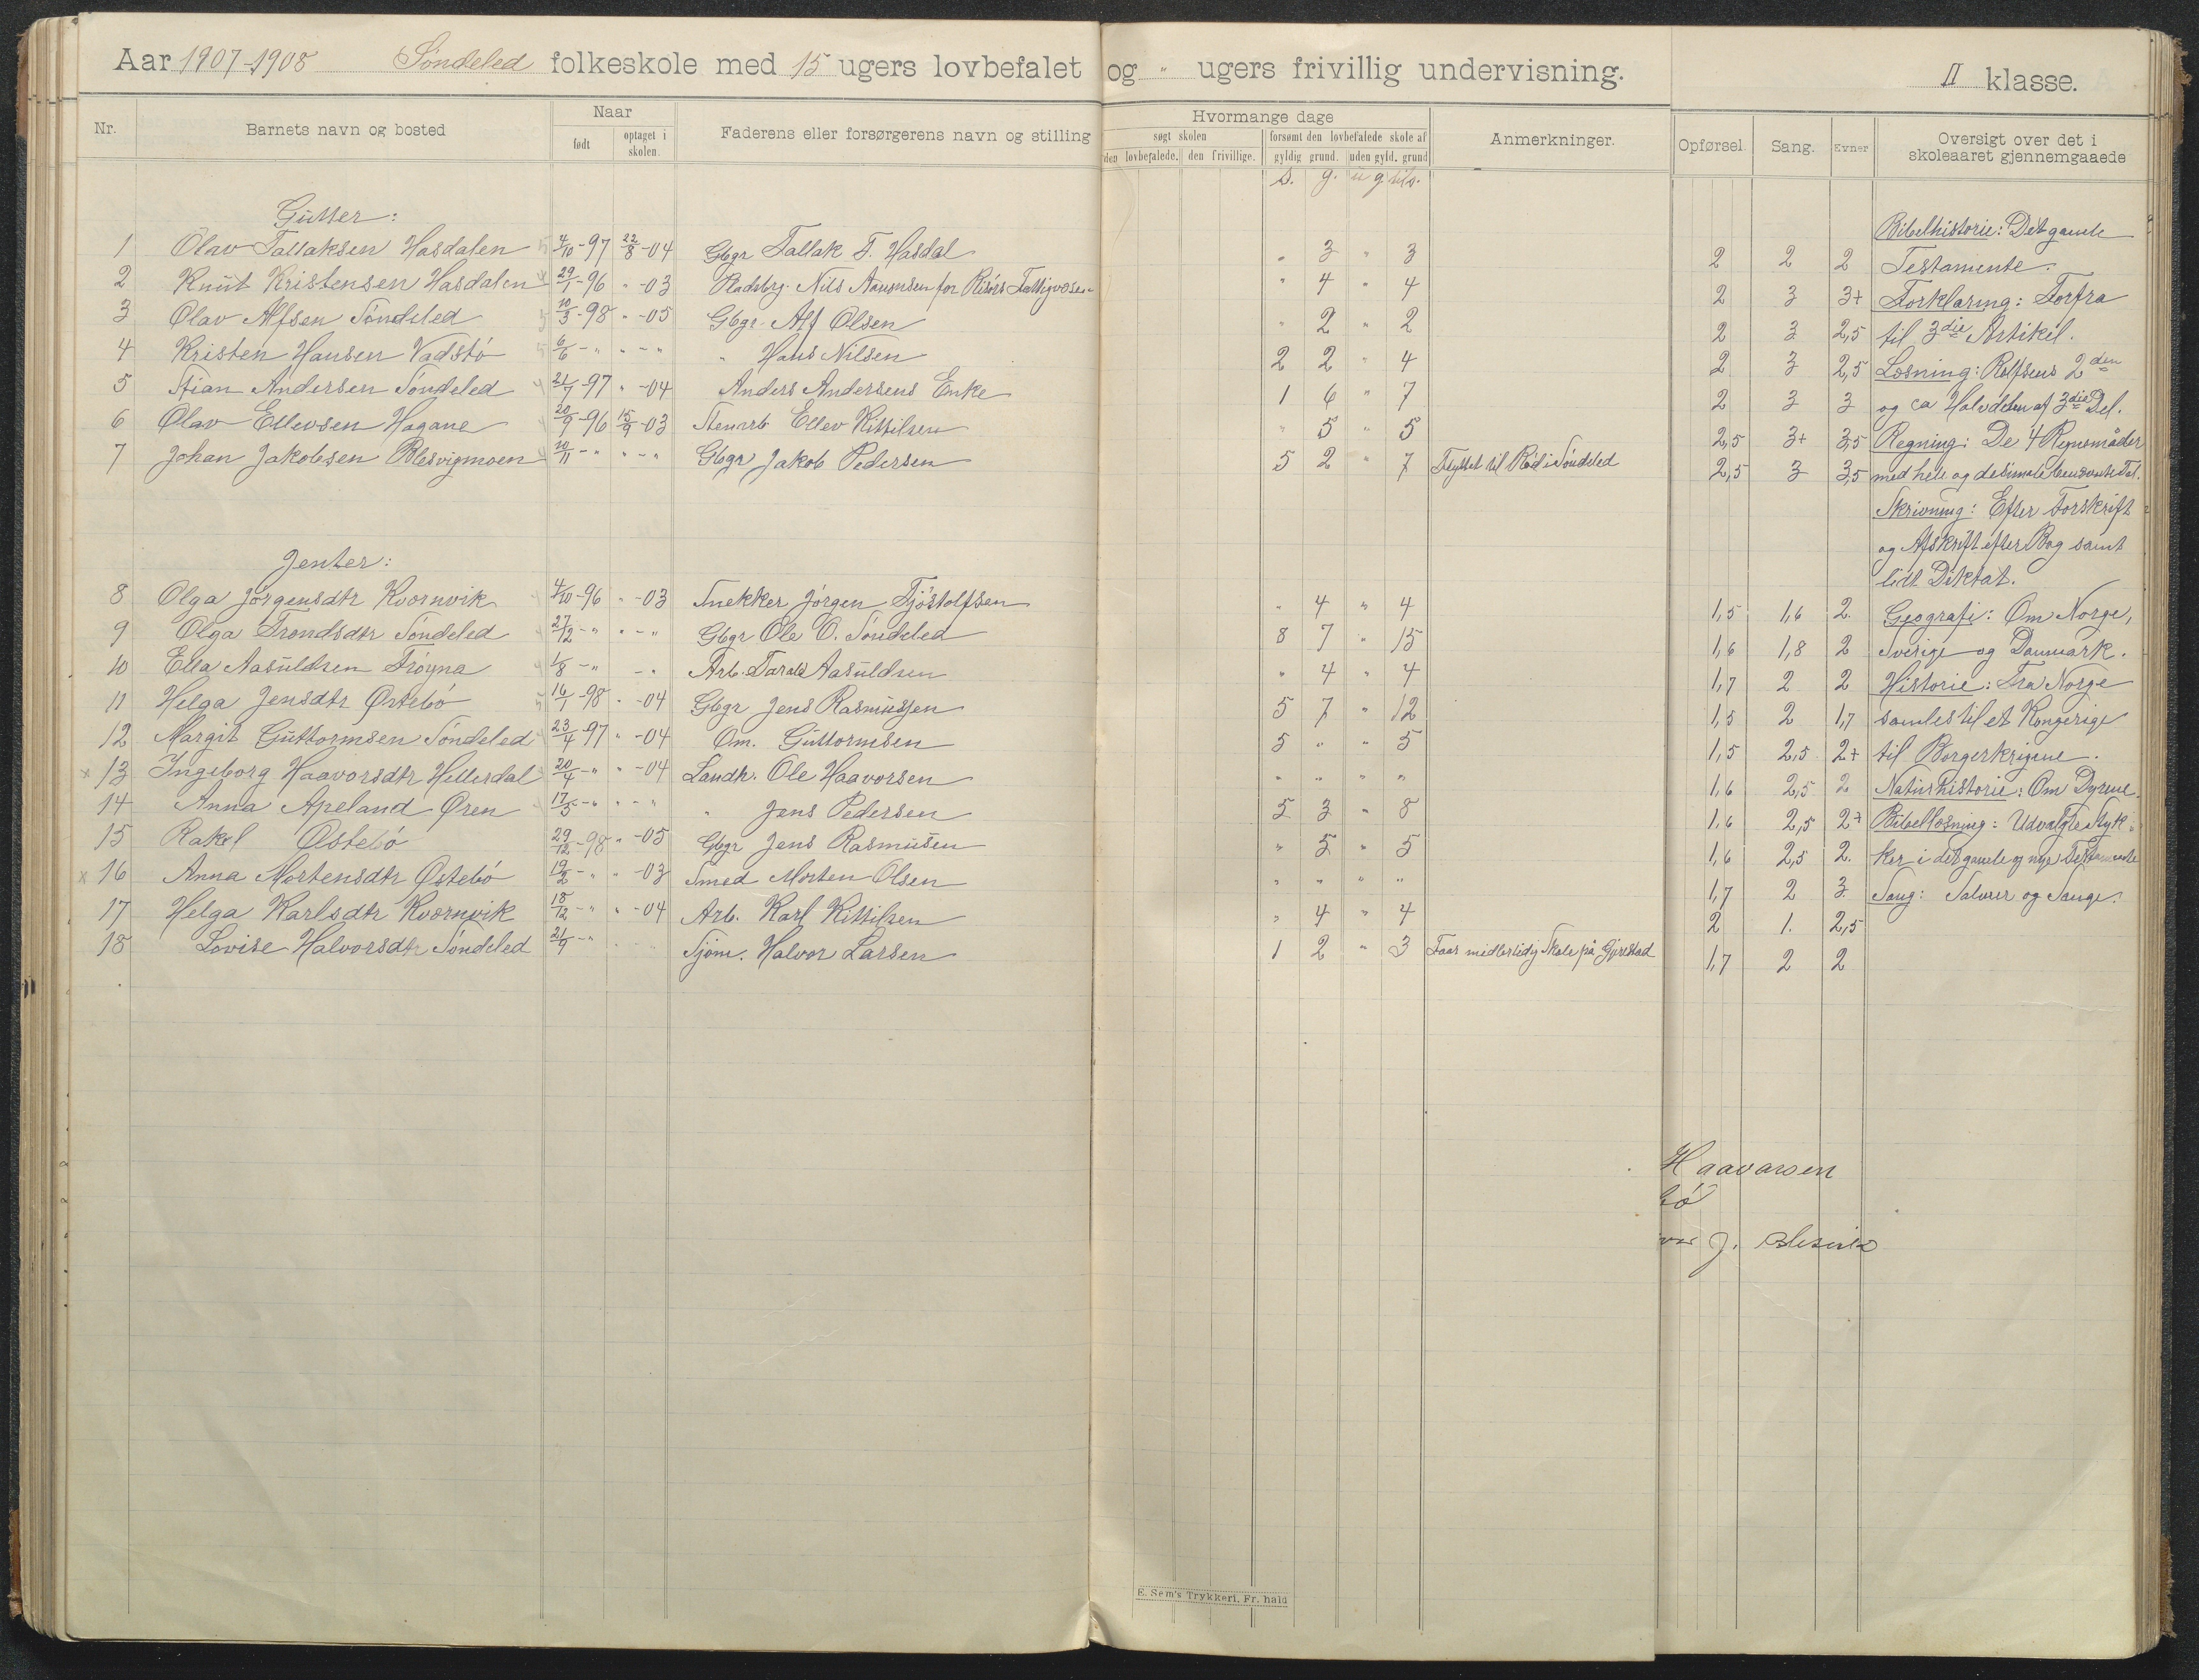 Aar 1907-1908 Söndeled folkeskole med 15 ugers lovbefalet og " ugers frivillig undervisning. II klasse.
Nr. Barnets navn og bosted Naar født optaget i skolen. Faderens eller forsørgerens navn og stilling Hvormange dage søgt skolen den lovbefalede. den frivillige. forsømt den lovbefalede skole af gyldig grund. uden gyld. grund Anmerkninger. Opførsel. Sang. Evner Oversigt over det i skoleaaret gjennemgaaede
s. g. u g tils.
Gutter: Bibelhistorie: Det gamle
1 Olav Tallaksen Hasdalen 4/10-97 22/8-04 Gbgr Tallak T. Hasdal " 3 " 3 2 2 2 Testamente.
2 Knut Kristensen Hasdalen 29/1-96 " -03 Pladsbrg. Nils Aanonsen for Risörs Fattigvæsen " 4 " 4 2 3 3+ Forklaring: Forfra
3 Olav Alfsen Söndeled 10/3-98 " -05 Gbgr. Alf Olsen " 2 " 2 2 3 2,5 til 3die Artikel.
4 Kristen Hansen Vadstö 6/6 - " " - " " Hans Nilsen 2 2 " 4 2 3 2,5 Læsning: Rolfsens 2den
5 Stian Andersen Söndeled 21/7-97 " -04 Anders Andersens Enke 1 6 " 7 2 3 3 og ca Halvdelen af 3die Del.
6 Olav Ellevsen Hagane 20/9-96 15/9-03 Stenarb Ellev Kittilsen " 5 " 5 2,5 3+ 3,5 Regning: De 4 Regnemåder
7 Johan Jakobsen Blesvigmoen 10/11 - " " - " Gbgr Jakob Pedersen 5 2 " 7 Flyttet til Rød i Söndeled 2,5 3 3,5 med hele og desimale benævnte Tal.
Skrivning: Efter Forskrift
og Afskrift efter Bog samt
Jenter: lidt Diktat.
8 Olga Jörgensdtr Kvornvik 4/10-96 " -03 Snekker Jörgen Tjöstolfsen " 4 " 4 1,5 1,6 2. Geografi: Om Norge,
9 Olga Trondsdtr Söndeled 27/12 - " " - " Gbgr Ole O. Söndeled 8 7 " 15 1,6 1,8 2 Sverige og Danmark.
10 Ella Aasuldsen Tröyna 1/8 - " - " Arb. Tarald Aasuldsen " 4 " 4 1,7 2 2 Historie: Fra Norge
11 Helga Jensdtr Østebö 16/1-98 " -04 Gbgr Jens Rasmussen 5 7 " 12 1,5 2 1,7 samles til et Kongerige
12 Margit Guttormsen Söndeled 23/4-97 " -04 Om. Guttormsen 5 " " 5 1,5 2,5 2+ til Borgerkrigene.
x 13 Ingeborg Haavorsdtr Hellerdal 20/4 - " " -04 Landh. Ole Haavorsen " " " " 1,6 2,5 2 Naturhistorie: Om Dyrene.
14 Anna Apeland Øren 17/5 - " " - " " Jens Pedersen 5 3 " 8 1,6 2,5 2+ Bibellæsning: Udvalgte Styk-
15 Rakel Østebö 29/12-98 " -05 Gbgr Jens Rasmusen " 5 " 5 1,6 2,5 2. ker i det gamle og nye Testamente
x 16 Anna Mortensdtr Østebö 19/2 - " " -03 Smed Morten Olsen " " " " 1,7 2 3. Sang: Salmer og Sange.
17 Helga Karlsdtr Kvornvik 18/12 - " " -04 Arb. Karl Kittilsen " 4 " 4 2 1. 2,5
18 Lovise Halvorsdtr Söndeled 21/9 - " Sjöm. Halvor Larsen 1 2 " 3 Faar midlertidig Skole på Gjerstad 1,7 2 2
Haavorsen
bö
J.
E. Sem's Trykkeri, Fr. hald